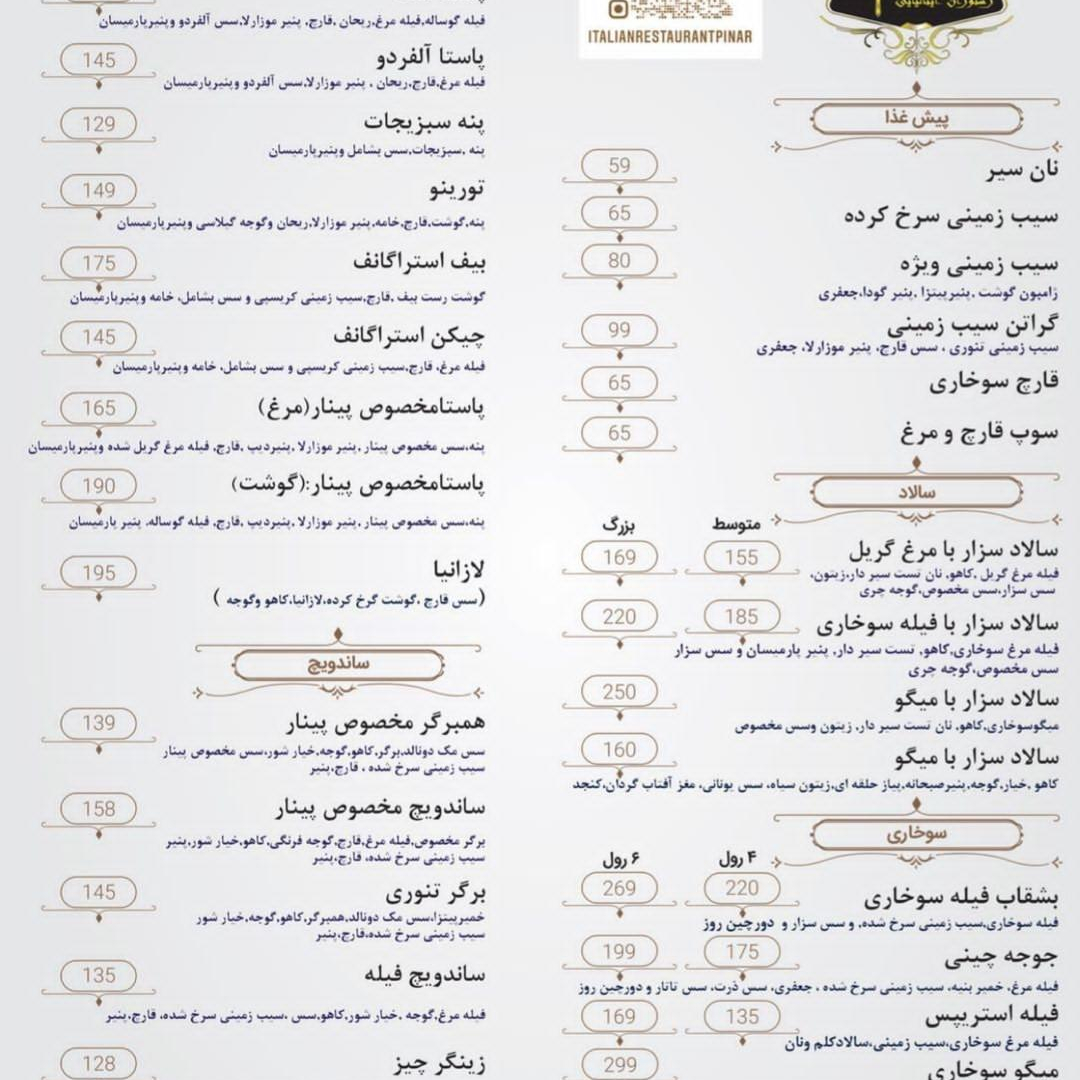 ITALIANRESTAURANTPINAR
پیش غذا
نان سیر 59
سیب زمینی سرخ کرده 65
سیب زمینی ویژه 80
ژامبون گوشت ،پنیرپیتزا ,پنیر گودا،جعفری
گراتن سیب زمینی 99
سیب زمینی تنوری ، سس قارچ، پنیر موزارلا، جعفری
قارچ سوخاری 65
سوپ قارچ و مرغ 65
سالاد
متوسط بزرگ
سالاد سزار با مرغ گریل 155 169
فیله مرغ گریل ،کاهو، نان تست سیر دار،زیتون،
سس سزار،سس مخصوص،گوجه چری
سالاد سزار با فیله سوخاری 185 220
فیله مرغ سوخاری،کاهو، تست سیر دار, پنیر پارمیسان و سس سزار
سس مخصوص،گوجه چری
سالاد سزار با میگو 250
میگوسوخاری،کاهو, نان تست سیر دار, زیتون وسس مخصوص
سالاد سزار با میگو 160
کاهو ,خیار,گوجه,پنیرصبحانه,پیاز حلقه ای,زیتون سیاه، سس یونانی، مغز آفتاب گردان،کنجد
سوخاری
۴ رول ۶ رول
بشقاب فیله سوخاری 220 269
فیله سوخاری،سیب زمینی سرخ شده, و سس سزار و دورچین روز
جوجه چینی 175 199
فیله مرغ، خمیر پنبه، سیب زمینی سرخ شده ، جعفری، سس ذرت، سس تاتار و دورچین روز
فیله استریپس 135 169
فیله مرغ سوخاری،سیب زمینی،سالادکلم ونان
میگو سوخاری 299
فیله گوساله,فیله مرغ,ریحان ,قارچ, پنیر موزارلا,سس آلفردو وپنیرپارمیسان
پاستا آلفردو 145
فیله مرغ,قارچ,ریحان ، پنیر موزارلا,سس آلفردو وپنیرپارمیسان
پنه سبزیجات 129
پنه ,سبزیجات,سس بشامل وپنیرپارمیسان
تورینو 149
پنه,گوشت,قارچ,خامه,پنیر موزارلا,ریحان وگوجه گیلاسی وپنیرپارمیسان
بیف استراگانف 175
گوشت رست بیف ,قارچ,سیب زمینی کریسپی و سس بشامل، خامه وپنیرپارمیسان
چیکن استراگانف 145
فیله مرغ، قارچ,سیب زمینی کریسپی و سس بشامل, خامه وپنیرپارمیسان
پاستامخصوص پینار(مرغ) 165
پنه,سس مخصوص پینار ,پنیر موزارلا ,پنیردیپ ,قارچ, فیله مرغ گریل شده وپنیرپارمیسان
پاستامخصوص پینار:(گوشت) 190
پنه،سس مخصوص پینار ,پنیر موزارلا ,پنیردیپ ,قارچ, فیله گوساله, پنیر پارمیسان
لازانیا 195
(سس قارچ ،گوشت گرخ کرده،لازانیا،کاهو وگوجه )
ساندویچ
همبرگر مخصوص پینار 139
سس مک دونالد,برگر,کاهو,گوجه,خیار شور,سس مخصوص پینار
سیب زمینی سرخ شده ، قارچ،پنیر
ساندویچ مخصوص پینار 158
برگر مخصوص,فیله مرغ,قارچ,گوجه فرنگی,کاهو,خیار شور,پنیر
سیب زمینی سرخ شده، قارچ،پنیر
برگر تنوری 145
خمیرپیتزا،سس مک دونالد,همبرگر,کاهو,گوجه,خیار شور
سیب زمینی سرخ شده،قارچ،پنیر
ساندویچ فیله 135
فیله مرغ,گوجه ,خیار شور,کاهو,سس ,سیب زمینی سرخ شده، قارچ،پنیر
زینگر چیز 128